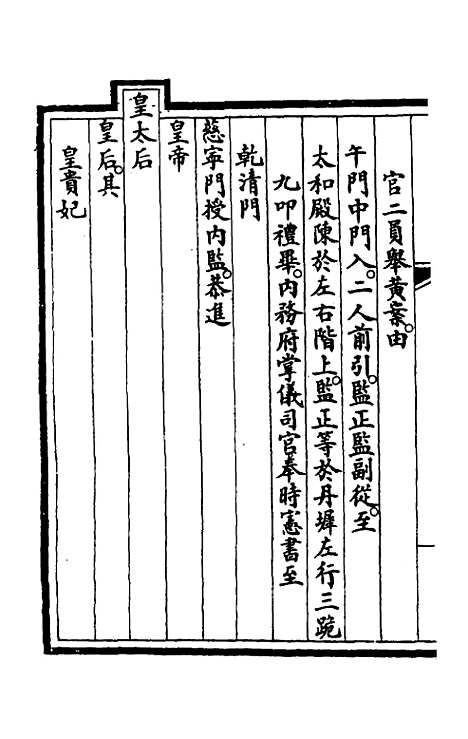 官二員舉黄案。由
午門中門入。二人前引。監正監副從。至
太和殿陳於左右階上。監正等於丹墀左行三跪
九叩禮畢。内務府掌儀司官奉時憲書至
乾清門
慈寧門授内監。恭進
皇帝
皇太后
皇后。其
皇貴妃